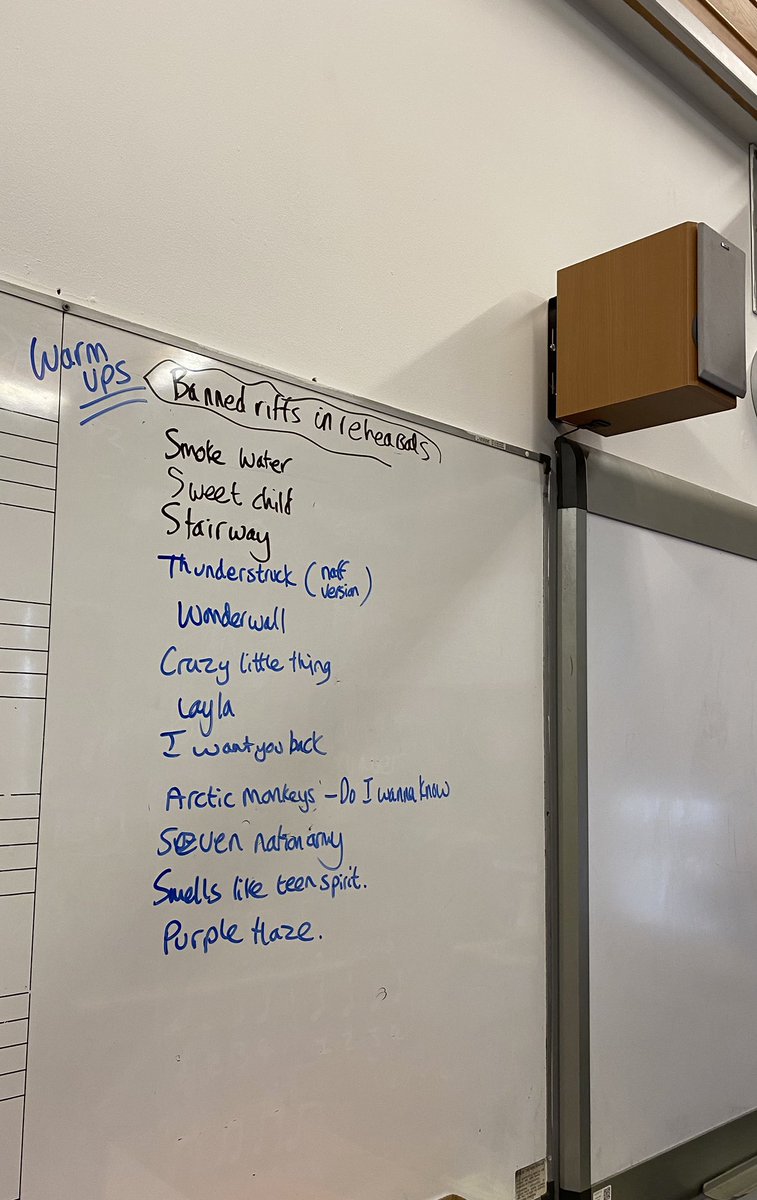 Warm
ups
Banned riffs in rehearsals
Smoke Water
Sweet child
Stairway
Thunderstruck (naff
version)
Wonderwall
Crazy little thing
Layla
I want you back
Arctic Monkeys - Do I wanna know
Seven nation army
Smells like teen spirit.
Purple Haze.